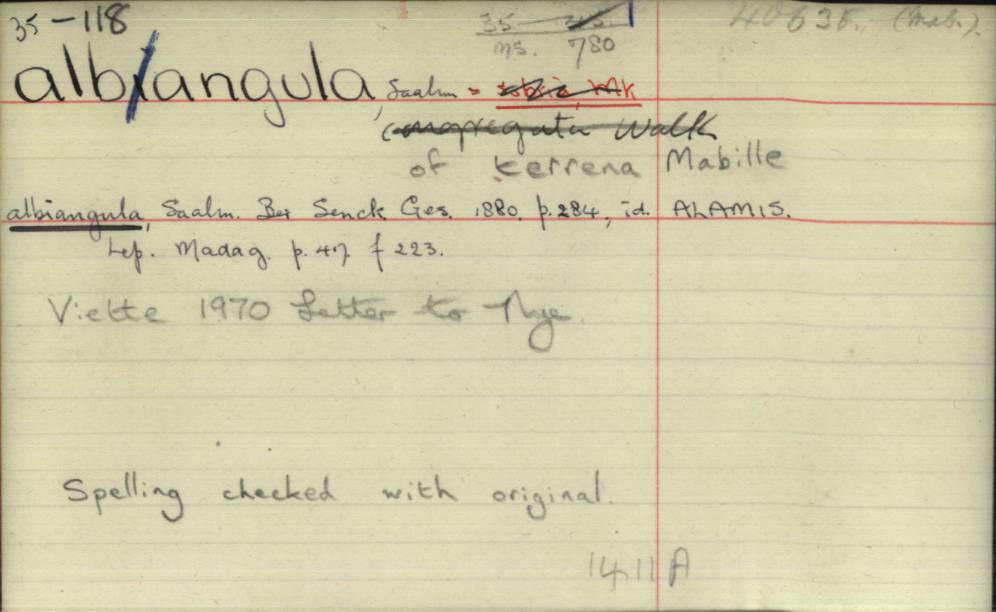 35-118
35
ms. 780
(Mab.).
albiangula, Saalm =
congregata Walk
of kerrena Mabille
albiangula, Saalm. Ber Senck. Ges. 1880. p.284, id. ALAMIS.
Lep. Madag. p. 417 f 223.
Viette 1970 Letter to Nye.
Spelling checked with original.
1411 A